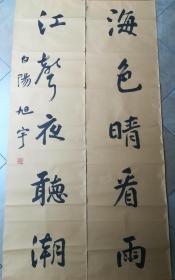 海色晴看雨
江聲夜聽潮
白陽 旭宇